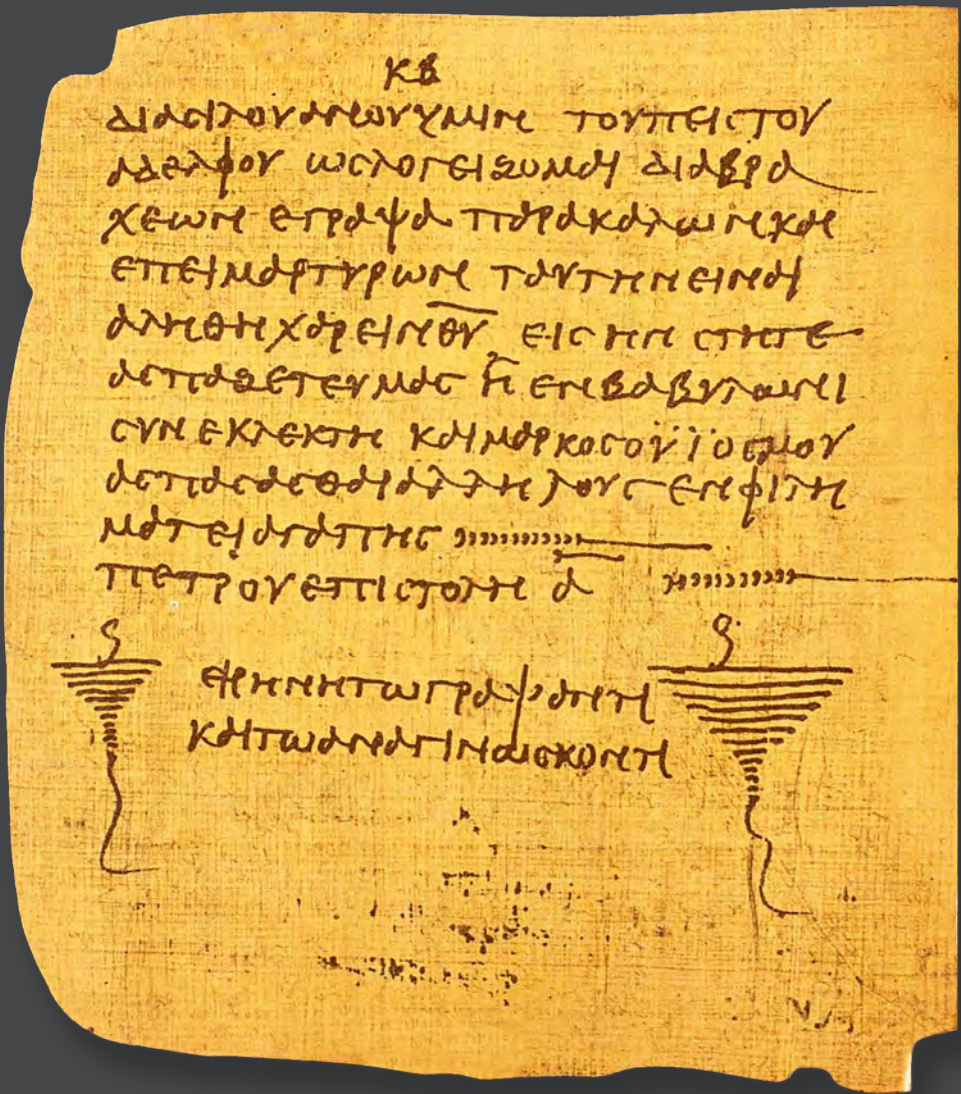 κβ
διασιλουανουυμιν τουπειστου
αδελφου ωσλογειζομαι διαβρα
χεων εγραψα παρακαλων και
επειμαρτυρων ταυτην ειναι
αληθη χαρειν θ̅υ̅ εις ην στητε
ασπαζετε υμας η ενβαβυλωνι
συνεκλεκτη και μαρκος ο ϋϊος μου
ασπασασθαι αλληλους εν φιλη
ματει αγαπης
πετρου επιστολη α̅
ειρηνη τω γραψαντι
και τω αναγινωσκοντι